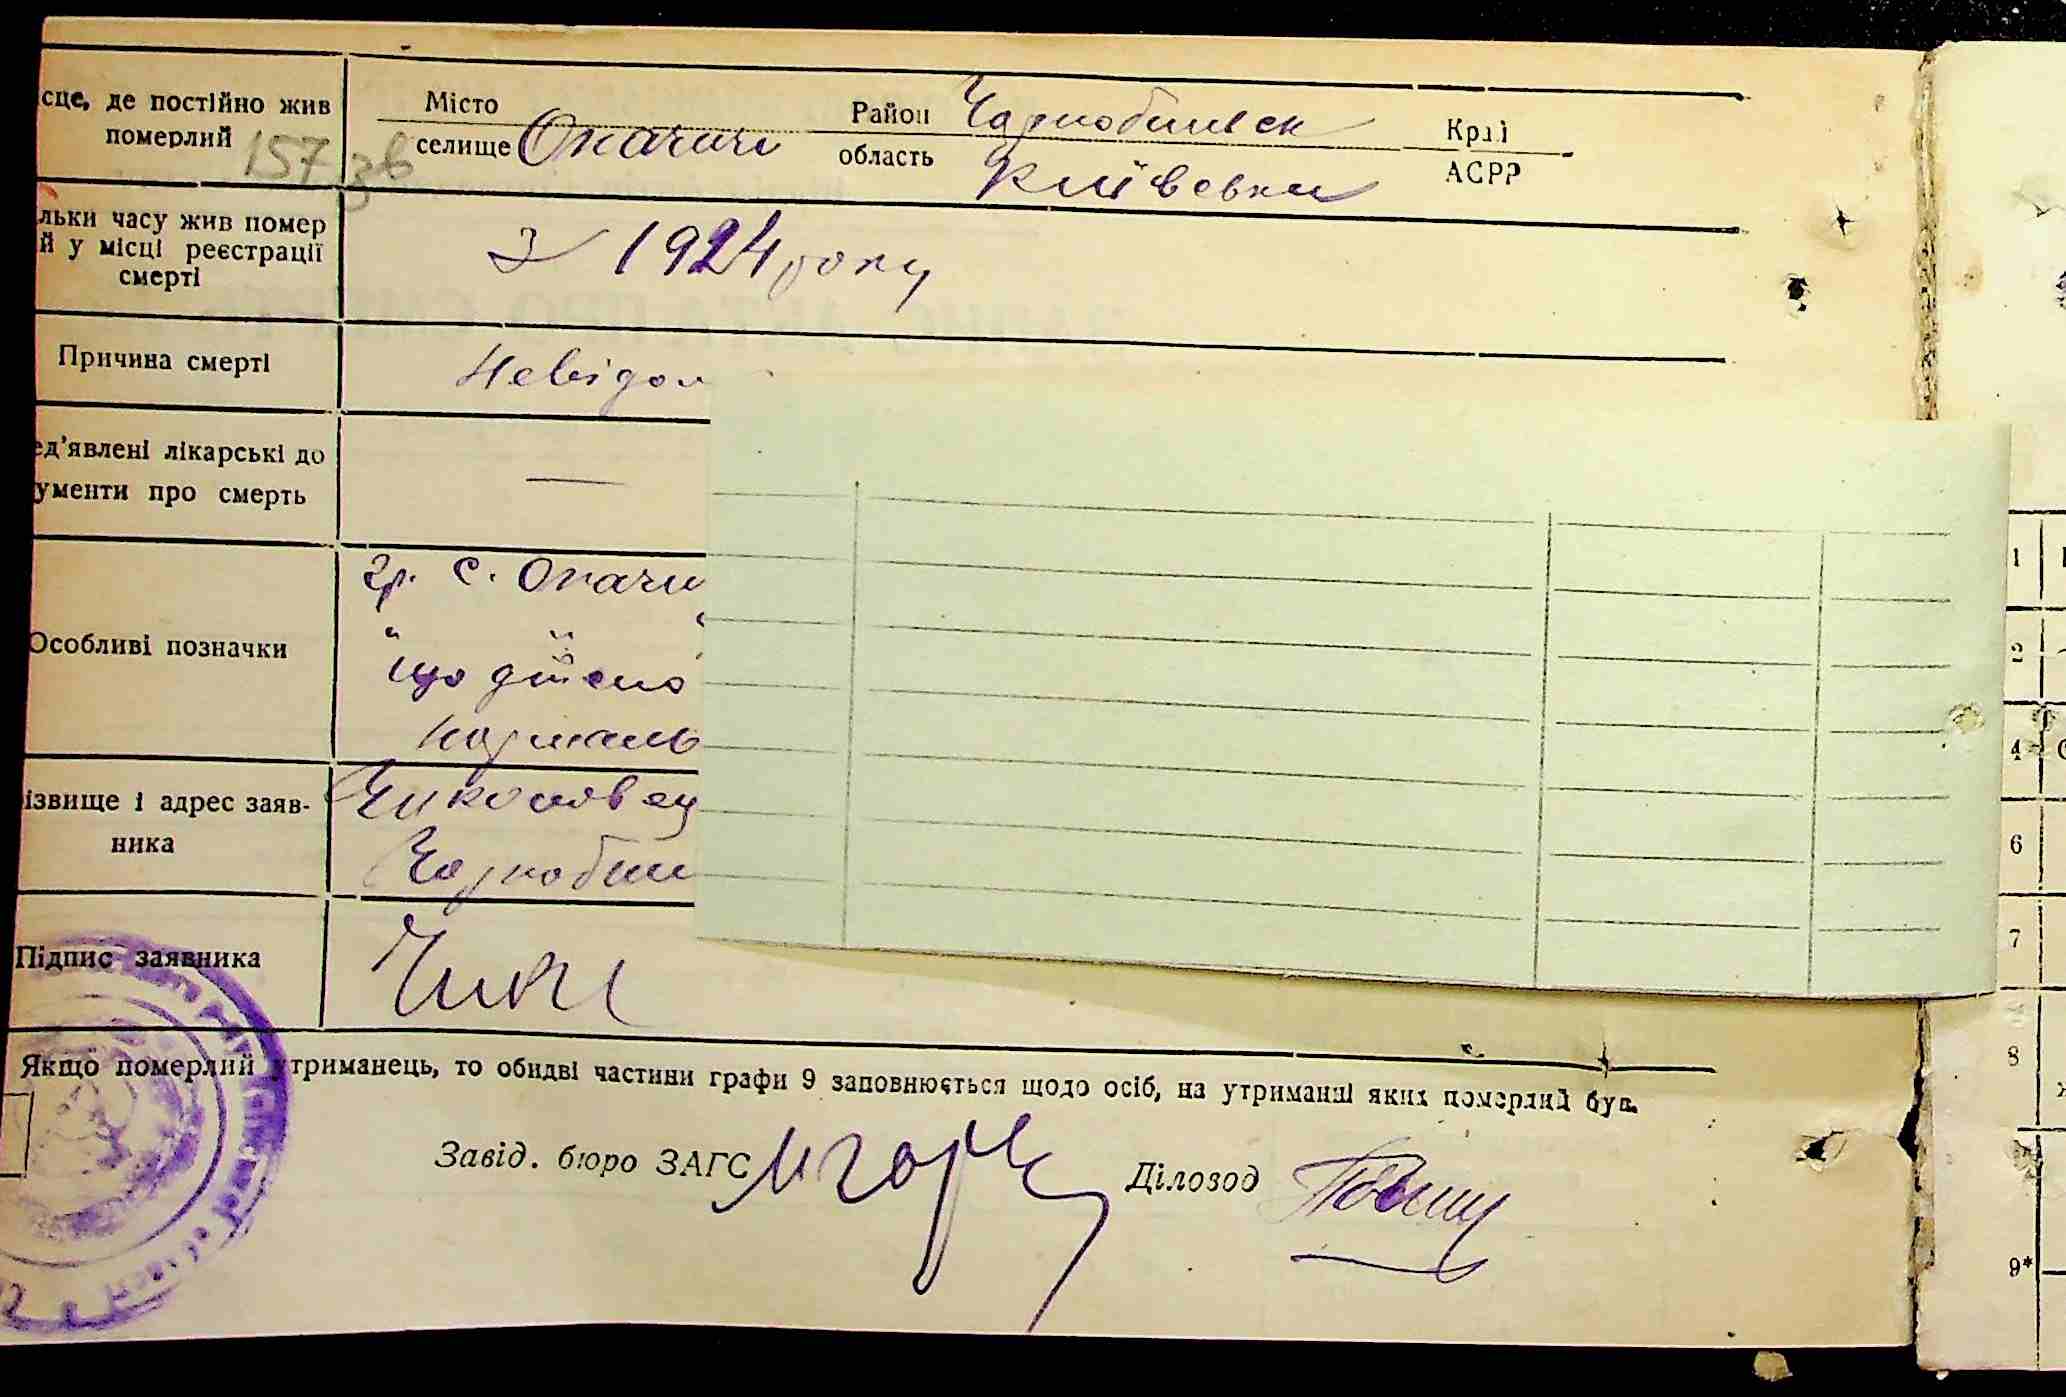 сце, де постійно жив
померлий
157 зв
Місто
селище Опачичі
Район Чорнобильськ
область Київська
Край
АСРР
льки часу жив помер
й у місці реєстрації
смерті
З 1924 року
Причина смерті
Невідом
ед'явлені лікарські до
ументи про смерть
—
Особливі позначки
гр. с. Опачи
що дійсно
нормаль
ізвище і адрес заяв-
ника
Чорнобил
Підпис заявника
Якщо померлий утриманець, то обидві частини графи 9 заповнюється щодо осіб, на утриманні яких померлий був.
Завід. бюро ЗАГС
Діловод
1
2
4
6
7
8
9*